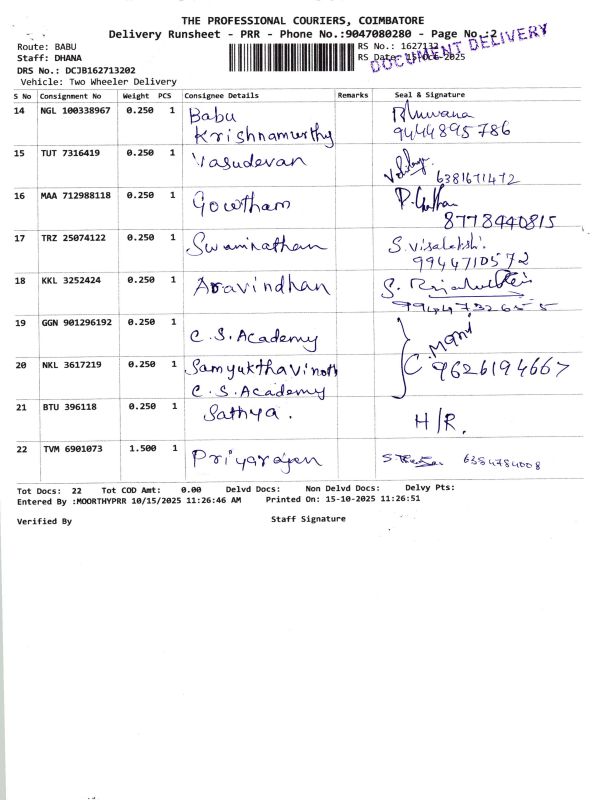 THE PROFESSIONAL COURIERS, COIMBATORE
Delivery Runsheet - PRR - Phone No.:9047080280 - Page No.:2
Route: BABU RS No.: 1627132
Staff: DHANA RS Date: 15-Oct-2025
DOCUMENT DELIVERY
DRS No.: DCJB162713202
Vehicle: Two Wheeler Delivery
S No Consignment No Weight PCS Consignee Details Remarks Seal & Signature
14 NGL 100338967 0.250 1 Babu Bhuvana
Krishnamurthy 9444895786
15 TUT 7316419 0.250 1 Vasudevan
6381671472
16 MAA 712988118 0.250 1 Gowtham
8778440815
17 TRZ 25074122 0.250 1 Swaminathan S. Visalakshi.
9944710572
18 KKL 3252424 0.250 1 Aravindhan S.
9944732655
19 GGN 901296192 0.250 1
C.S.Academy C. Mani
20 NKL 3617219 0.250 1 Samyukthavinoth 9626194667
C.S.Academy
21 BTU 396118 0.250 1 Sathya. H/R.
22 TVM 6901073 1.500 1 Priyarajen 6384784008
Tot Docs: 22 Tot COD Amt: 0.00 Delvd Docs: Non Delvd Docs: Delvy Pts:
Entered By :MOORTHYPRR 10/15/2025 11:26:46 AM Printed On: 15-10-2025 11:26:51
Verified By Staff Signature